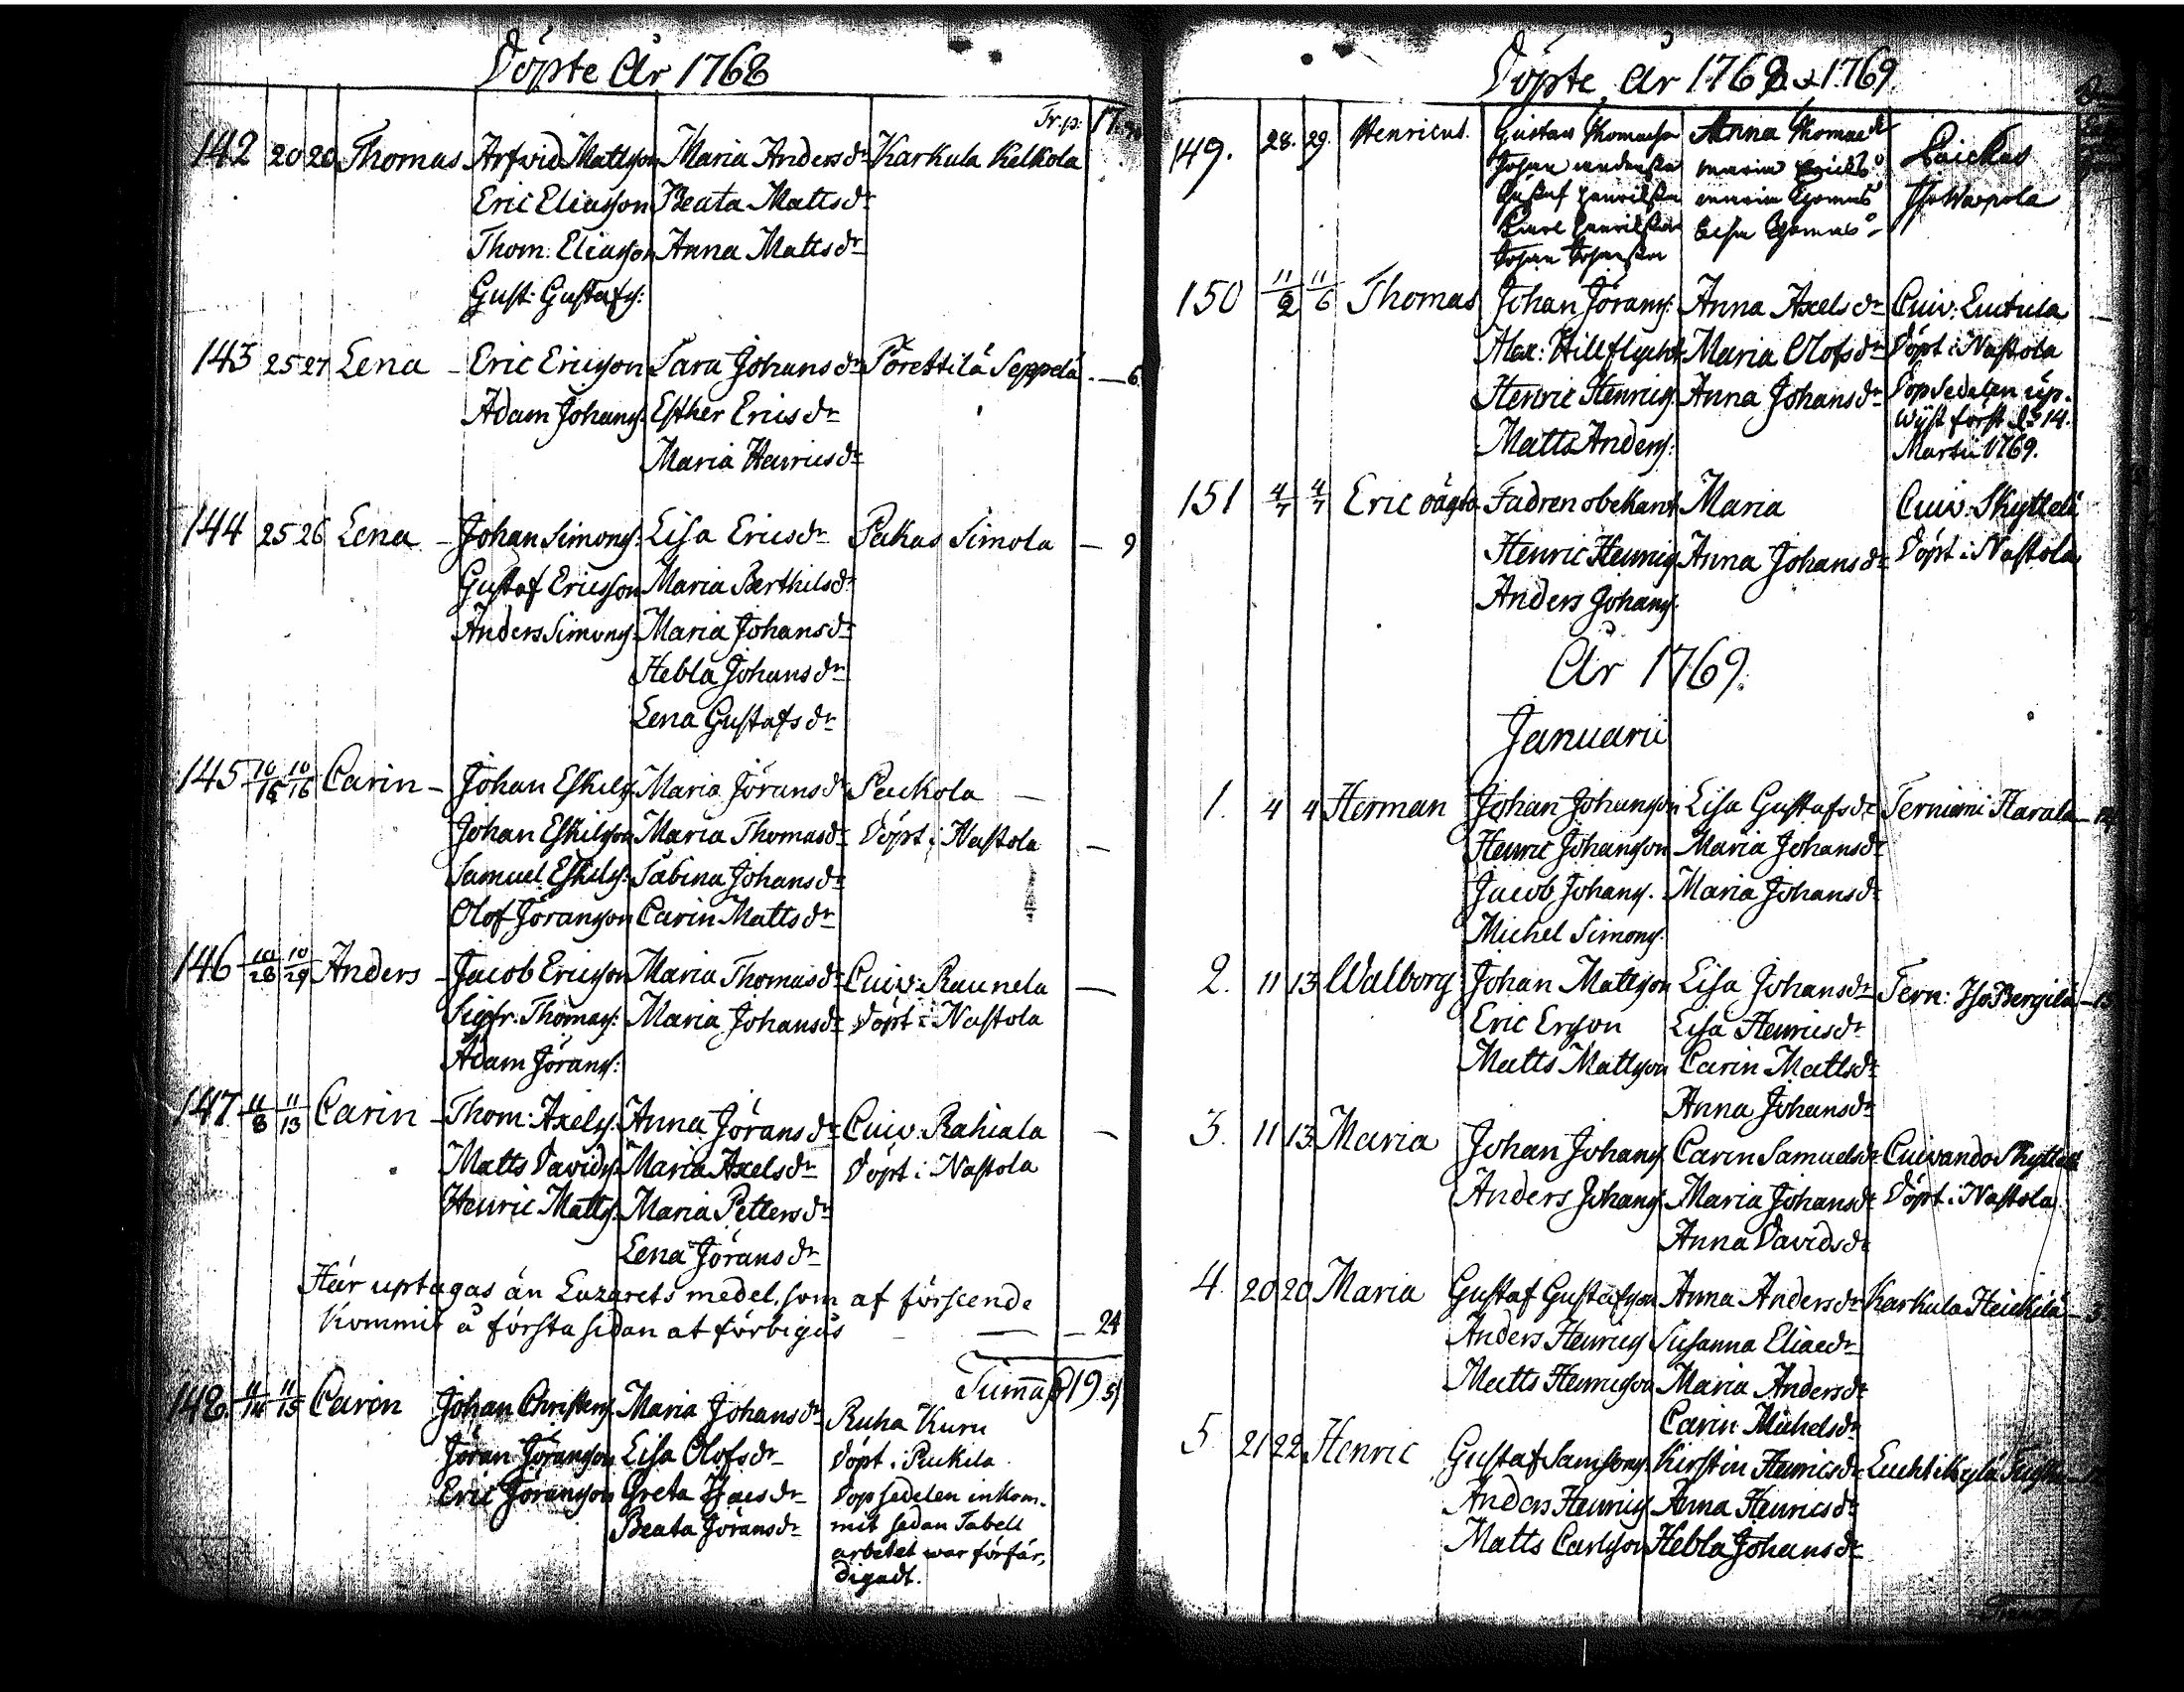 Döpte År 1768
Tr. p. 17
142 20 20 Thomas Arfvid Mattsson Maria Andersdr Karkula Kelkola
Eric Eliasson Beata Mattsdr
Thom: Eliasson Anna Mattsdr
Gust: Gustafs:
143 25 27 Lena – Eric Ericsson Sara Johansdr Sörettilä Seppelä – 6
Adam Johans: Esther Ericsdr
Maria Henricsdr
144 25 26 Lena – Johan Simons: Lisa Ericsdr Pakas Simola – 9
Gustaf Ericsson Maria Berthilsdr
Anders Simons: Maria Johansdr
Hebla Johansdr
Lena Gustafsdr
145 10/16 10/16 Carin – Johan Eskils: Maria Jöransdr Peukola –
Johan Eskilsson Maria Thomasdr Döpt i Nastola –
Samuel Eskils: Sabina Johansdr
Olof Jöransson Carin Mattsdr
146 10/28 10/29 Anders – Jacob Ericsson Maria Thomasdr Cuiv: Raunela –
Sigfr: Thomas: Maria Johansdr Döpt i Nastola
Adam Jörans:
147 11/8 11/13 Carin – Thom: Axels: Anna Jöransdr Cuiv: Rahiala –
Matts Davids: Maria Axelsdr Döpt i Nastola
Henric Matts: Maria Pettersdr
Lena Jöransdr
Här uptagas än Lazarets medel, som af förseende
kommit å första sidan at förbigås – – 24
Summa 19. 51
148. 11/14 11/15 Carin Johan Christers: Maria Johansdr Ruha Kuru
Jöran Jöransson Lisa Olofsdr Döpt i Peukila
Eric Jöransson Greta Isacsdr Döpsedelen inkom-
Beata Jöransdr mit sedan Tabell
arbetet war förfär-
digadt.
Döpte År 1768 & 1769
149. 28. 29. Henricus. Gustav Thomasson Anna Thomaedr
Johan Andersson Maria Ericsdr
Gustaf Henrikson Maria Thomasdr
Carl Henrikson Lisa Thomasdr
Johan Johansson
150 11/2 11/6 Thomas Johan Jörans: Anna Axelsdr Cuiv: Eutula –
Alex: Hillflycht Maria Olofsdr Döpt i Nastola
Henric Henrics: Anna Johansdr Döpsedelen up-
Matts Anders: wist först d. 14.
Martii 1769.
151 4/7 4/7 Eric oägta Fadren obekant Maria Cuiv: Skyttelä
Henric Henrics: Anna Johansdr Döpt i Nastola
Anders Johans:
År 1769.
Januarii
1. 4 4 Herman Johan Johansson Lisa Gustafsdr Terniemi Harala
Henric Johansson Maria Johansdr
Jacob Johans. Maria Johansdr
Michel Simons.
2. 11 13 Walborg Johan Mattsson Lisa Johansdr Tern: Iso Bergilä
Eric Ersson Lisa Henricsdr
Matts Mattsson Carin Mattsdr
Anna Johansdr
3. 11 13 Maria Johan Johans: Carin Samuelsdr Cuivando Skyttelä
Anders Johans: Maria Johansdr Döpt i Nastola
Anna Davidsdr
4. 20 20 Maria Gustaf Gustafsson Anna Andersdr Karkula Heickilä
Anders Henrics: Susanna Eliaedr
Matts Henricsson Maria Andersdr
Carin Michelsdr
5 21 22 Henric Gustaf Samsons: Kirstin Henricsdr
Anders Henrics: Anna Henricsdr
Matts Carlsson Hebla Johansdr